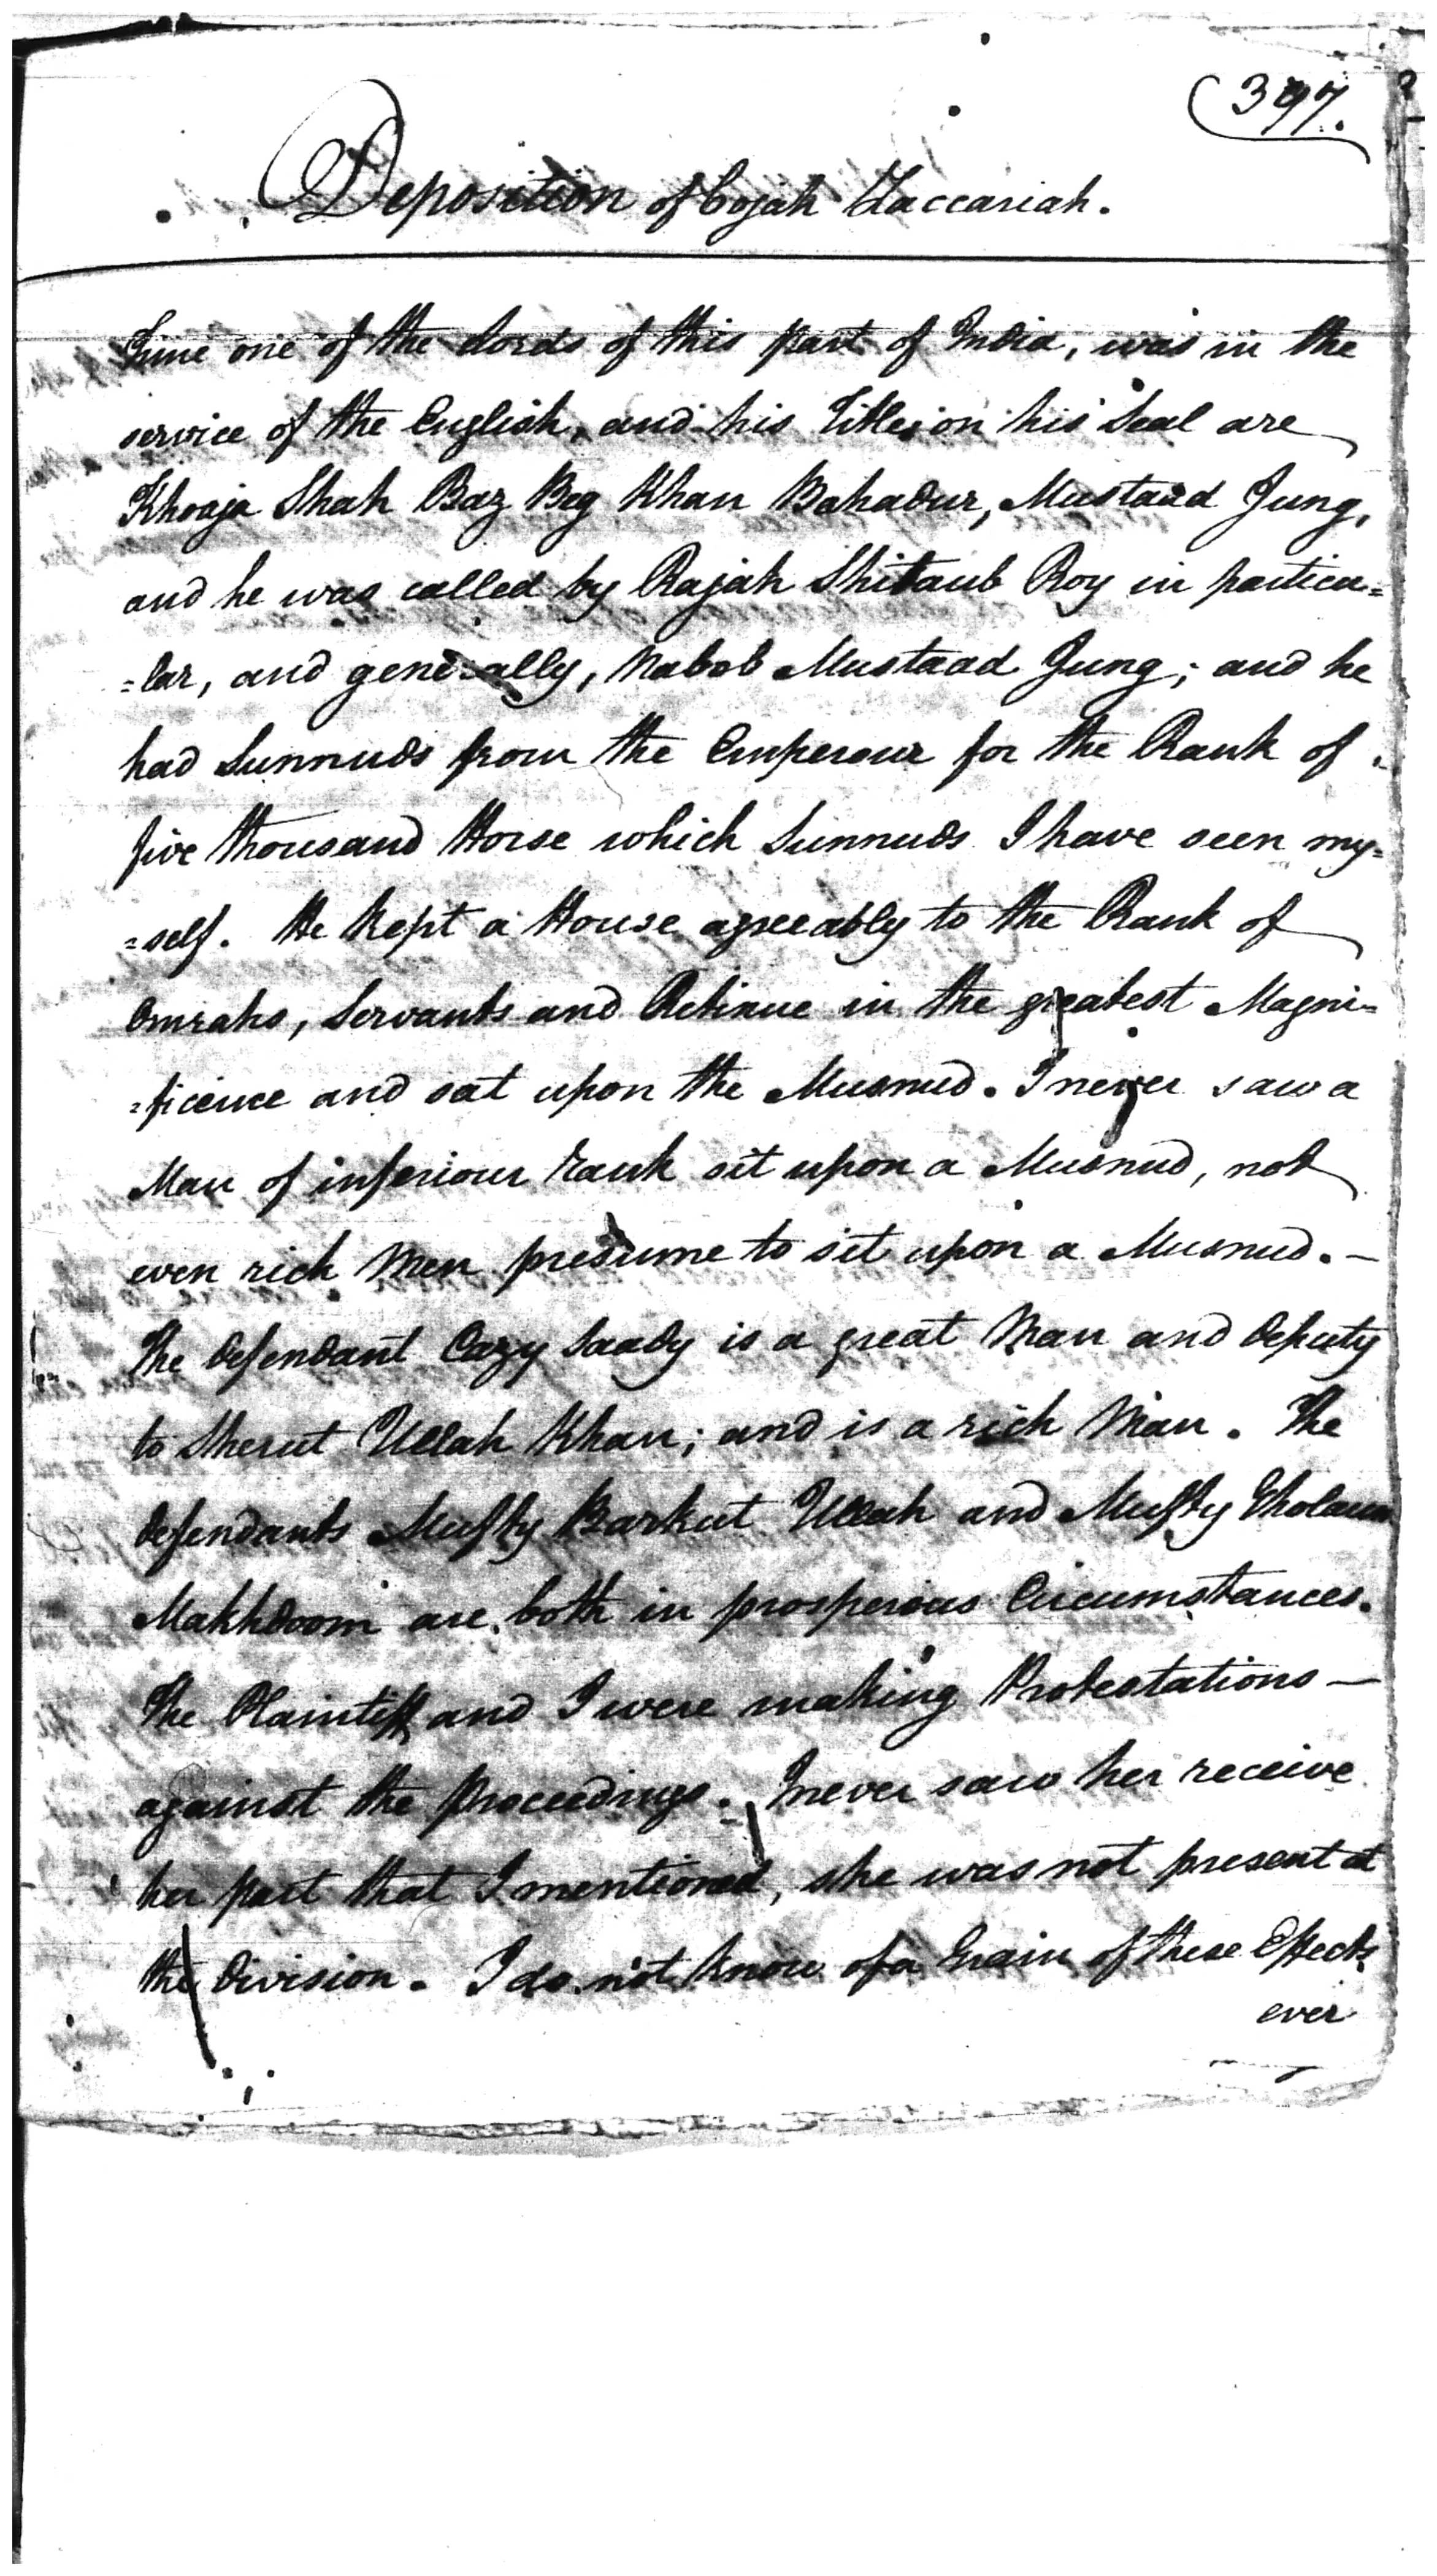 (397.
Deposition of Cojah Zaccariah.
Time one of the Lords of this part of India, was in the
service of the English, and his Titles on his Seal are
Khoaja Shah Baz Beg Khan Bahadur, Mustaid Jung,
and he was called by Rajah Shitaub Roy in particu=
=lar, and generally, Nabob Mustaad Jung; and he
had Sunnuds from the Emperour for the Rank of
five thousand Horse which Sunnuds I have seen my=
=self. He kept a House agreeably to the Rank of
Omrahs, Servants and Retinue in the greatest Magni=
=ficence and sat upon the Musnud. I never saw a
Man of inferiour rank sit upon a Musnud, not
even rich Men presume to sit upon a Musnud. —
The defendant Cazy Saady is a great Man and deputy
to Sherut Ullah Khan; and is a rich Man. The
defendants Mufty Barkut Ullah and Mufty Gholaum
Makhdoom are both in prosperous Circumstances.
The Plaintiff and I were making Protestations —
against the proceedings. I never saw her receive
her part that I mentioned, she was not present at
the division. I do not know of a Grain of these Effects
ever